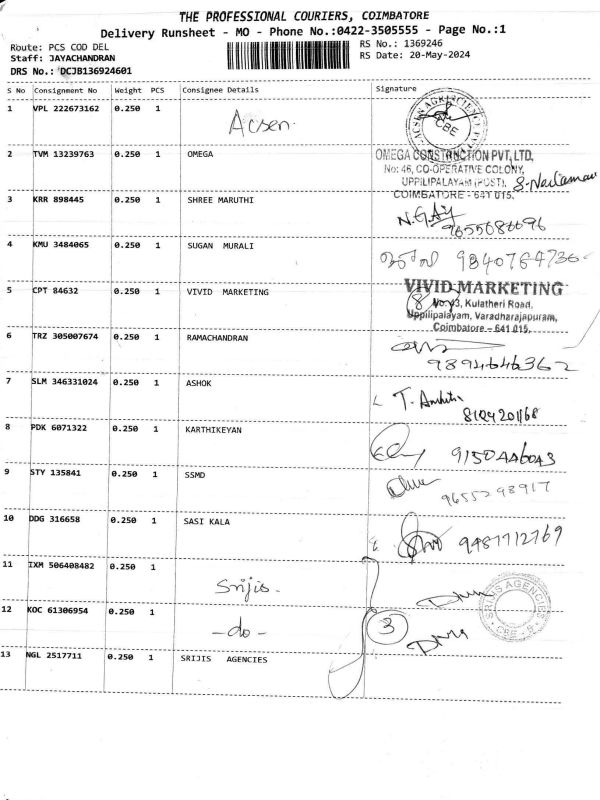 THE PROFESSIONAL COURIERS, COIMBATORE
Delivery Runsheet - MO - Phone No.:0422-3505555 - Page No.:1
Route: PCS COD DEL
RS No.: 1369246
Staff: JAYACHANDRAN
RS Date: 20-May-2024
DRS No.: DCJB136924601
S No Consignment No Weight PCS Consignee Details Signature
1 VPL 222673162 0.250 1 Acsen.
CBE
2 TVM 13239763 0.250 1 OMEGA
OMEGA CONSTRUCTION PVT, LTD,
No: 46, CO-OPERATIVE COLONY,
UPPILIPALAYAM (POST),
COIMBATORE - 641 015.
3 KRR 898445 0.250 1 SHREE MARUTHI
9655686696
4 KMU 3484065 0.250 1 SUGAN MURALI
9840764736
5 CPT 84632 0.250 1 VIVID MARKETING
VIVID MARKETING
No: 43, Kulatheri Road,
Uppilipalayam, Varadharajapuram,
Coimbatore - 641 015.
6 TRZ 305007674 0.250 1 RAMACHANDRAN
9894646362
7 SLM 346331024 0.250 1 ASHOK
8124201168
8 PDK 6071322 0.250 1 KARTHIKEYAN
9150446043
9 STY 135841 0.250 1 SSMD
9655298917
10 DDG 316658 0.250 1 SASI KALA
9487712769
11 IXM 506408482 0.250 1 Srijis.
SRIJIS AGENCIES
CBE
12 KOC 61306954 0.250 1 -do-
3
13 NGL 2517711 0.250 1 SRIJIS AGENCIES